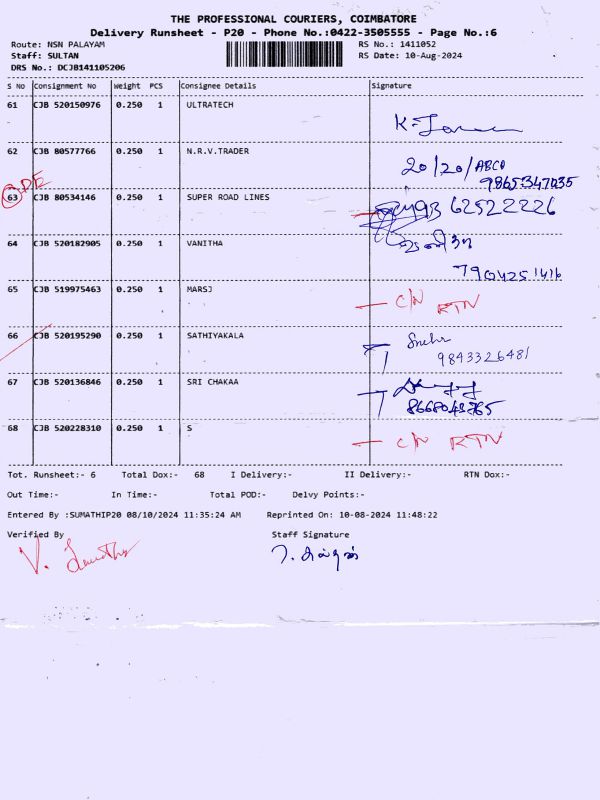 THE PROFESSIONAL COURIERS, COIMBATORE
Delivery Runsheet - P20 - Phone No.:0422-3505555 - Page No.:6
Route: NSN PALAYAM RS No.: 1411052
Staff: SULTAN RS Date: 10-Aug-2024
DRS No.: DCJB141105206
S No Consignment No Weight PCS Consignee Details Signature
61 CJB 520150976 0.250 1 ULTRATECH
62 CJB 80577766 0.250 1 N.R.V.TRADER 20/20/ABCD
9865347035
63 CJB 80534146 0.250 1 SUPER ROAD LINES
64 CJB 520182905 0.250 1 VANITHA வனிதா
7904251416
65 CJB 519975463 0.250 1 MARSJ C/N RTN
66 CJB 520195290 0.250 1 SATHIYAKALA
9843326481
67 CJB 520136846 0.250 1 SRI CHAKAA
68 CJB 520228310 0.250 1 S C/N RTN
Tot. Runsheet:- 6 Total Dox:- 68 I Delivery:- II Delivery:- RTN Dox:-
Out Time:- In Time:- Total POD:- Delvy Points:-
Entered By :SUMATHIP20 08/10/2024 11:35:24 AM Reprinted On: 10-08-2024 11:48:22
Verified By Staff Signature